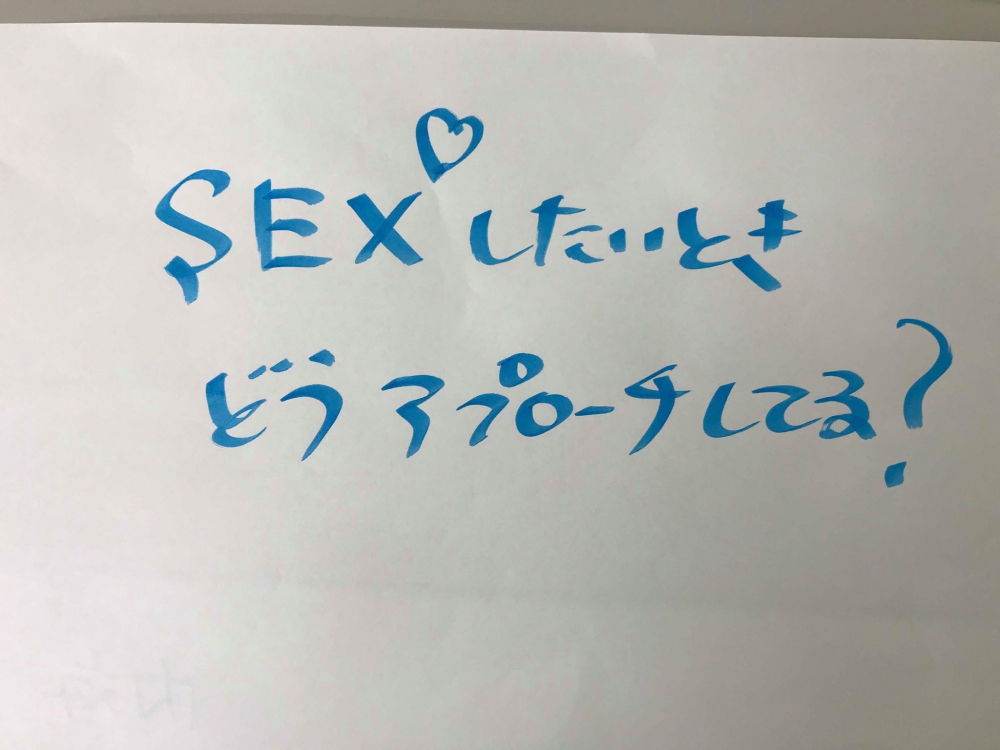 SEX♡したいとき
どうアプローチしてる?